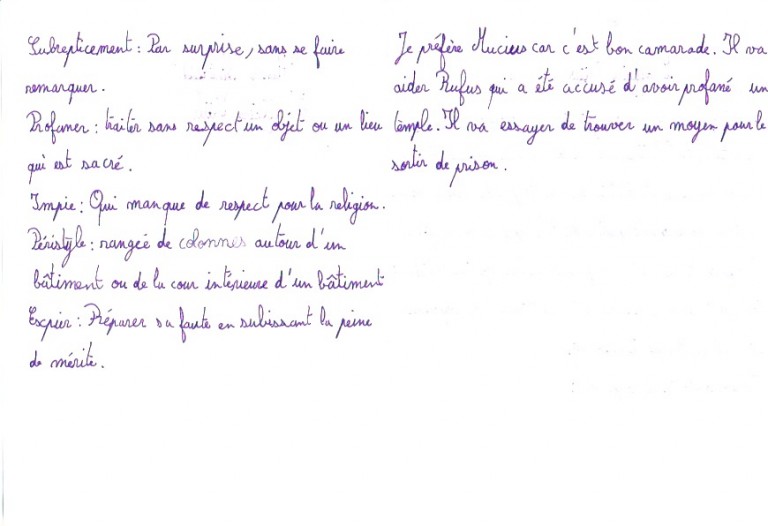 Subrepticement : Par surprise, sans se faire
remarquer.
Profaner : traiter sans respect un objet ou un lieu
qui est sacré.
Impie : Qui manque de respect pour la religion.
Péristyle : rangeé de colonnes autour d'un
bâtiment ou de la cour intérieure d'un bâtiment
Expier : Préparer sa faute en subissant la peine
de mérite.
Je préfère Mucius car c'est bon camarade. Il va
aider Rufus qui a été accusé d'avoir profané un
temple. Il va essayer de trouver un moyen pour le
sortir de prison.